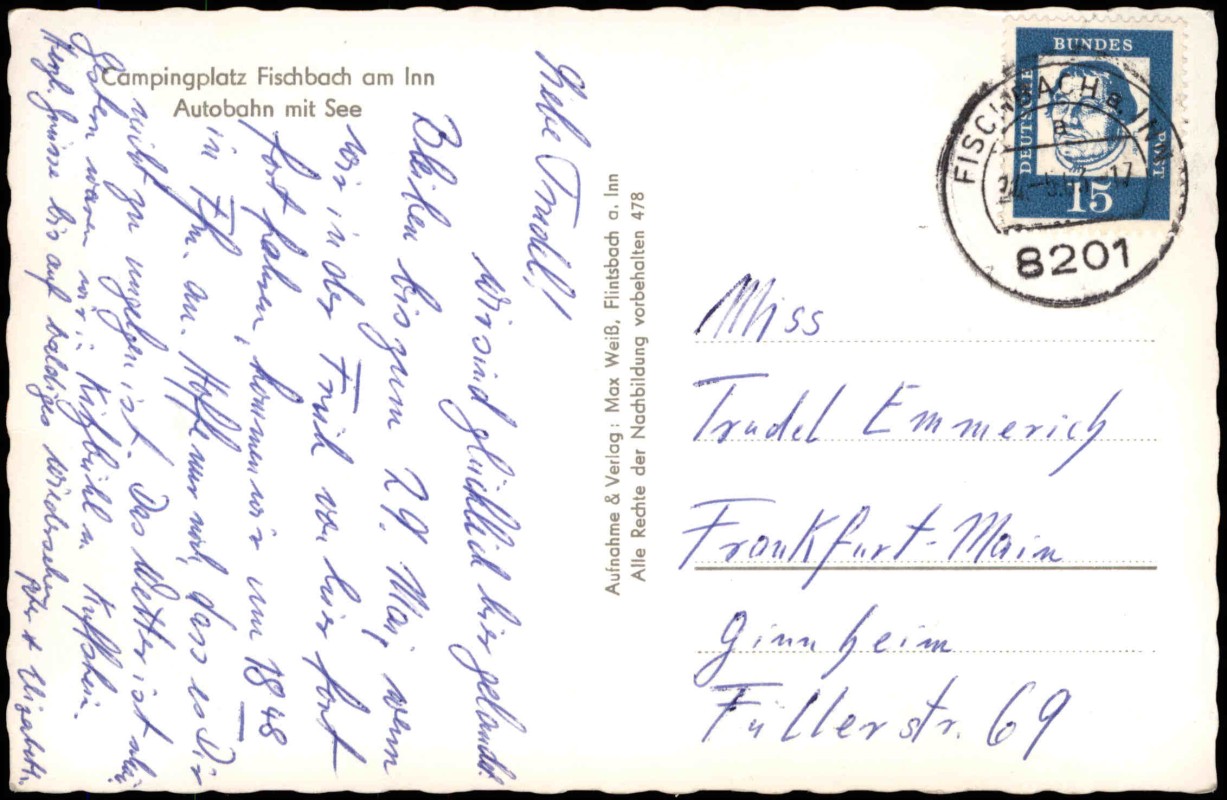 Campingplatz Fischbach am Inn
Autobahn mit See
Liebe Trudel!
Wir sind glücklich hier gelandet.
Bleiben bis zum 29. Mai, wenn
wir in der Früh von hier fort
fort fahren, kommen wir um 18 48
in Ffm. an. Hoffe nur noch, dass es Dir
nicht zu ungelegen ist. Das Wetter ist
Gestern waren wir in Kitzbühl u. Kuffstein.
Herzl. Grüsse bis auf baldiges Wiedersehen
Peter + Elisabeth
Aufnahme & Verlag: Max Weiß, Flintsbach a. Inn
Alle Rechte der Nachbildung vorbehalten 478
DEUTSCHE BUNDES POST
15
FISCHBACH a. INN
a
8201
Miss
Trudel Emmerich
Frankfurt-Main
Ginnheim
Füllerstr. 69